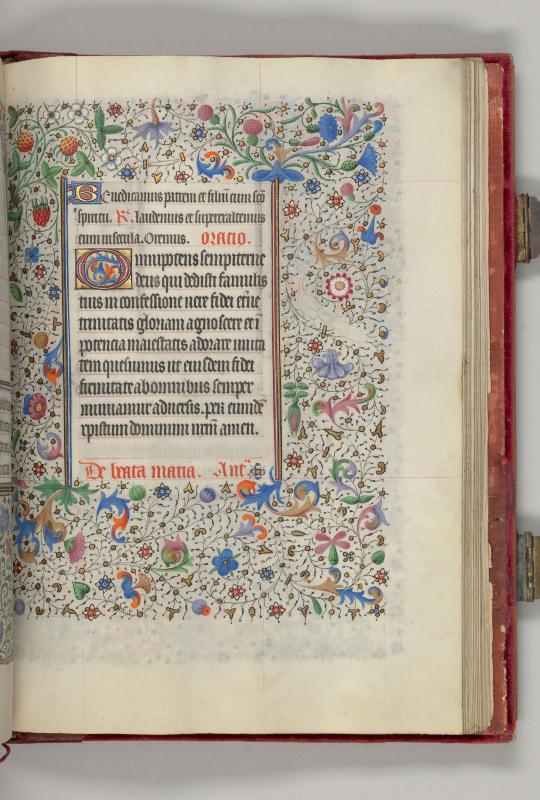 Benedicamus patrem et filiū cum sc̄o
spiritu. R. laudemus et superexaltemus
eum in secula. Oremus. Oratio.
Omnipotens sempiterne
deus qui dedisti famulis
tuis in confessione vere fidei et̄ne
trinitatis gloriam agnoscere et ī
potencia maiestatis adorare unita
tem quesumus ut eiusdem fidei
firmitate ab omnibus semper
muniamur aduersis. per eundē
xp̄istum dominum nrm̄ amen.
De beata maria. Ant͞